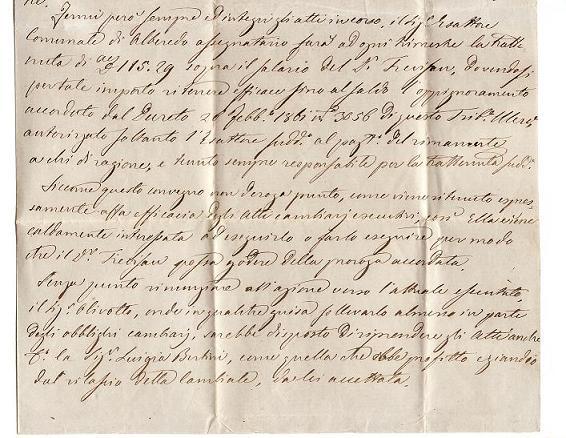 ne.
Fermi però sempre ed integri gli atti in corso, il Sig.r Esattore
Comunale di Albaredo assegnatario farà ad ogni rimesse la tratte
nuta di 115.29 sopra il salario del S.r Trevisan, dovendosi
per tale importo ritenere efficace fino al saldo oppignoramento
accordato dal Decreto 20 Febb.o 1861 N.o 3056 di questo Trib.e
autorizzato soltanto l'Esattore sudd.o al pag.o del rimanente
a chi di ragione, e tenuto sempre responsabile per la trattenuta sudd.a
Siccome questo convegno non deroga punto, come viene ritenuto espres
samente alla efficacia degli Atti cambiarj esecutivi, così Ella viene
caldamente interessata ad eseguirlo o farlo eseguire per modo
che il S.r Trevisan possa godere della proroga accordata.
Senza punto rinunziare all'azione verso l'attuale esecutato,
il Sig.r Olivotto, onde in qualche guisa sollevarlo almeno in parte
dagli obblighi cambiarj, sarebbe disposto di riprendere gli Atti anche
la Sig.a Luigia Bertini, come quella che ebbe profitto eziandio
dal rilascio della Cambiale, da lei accettata.